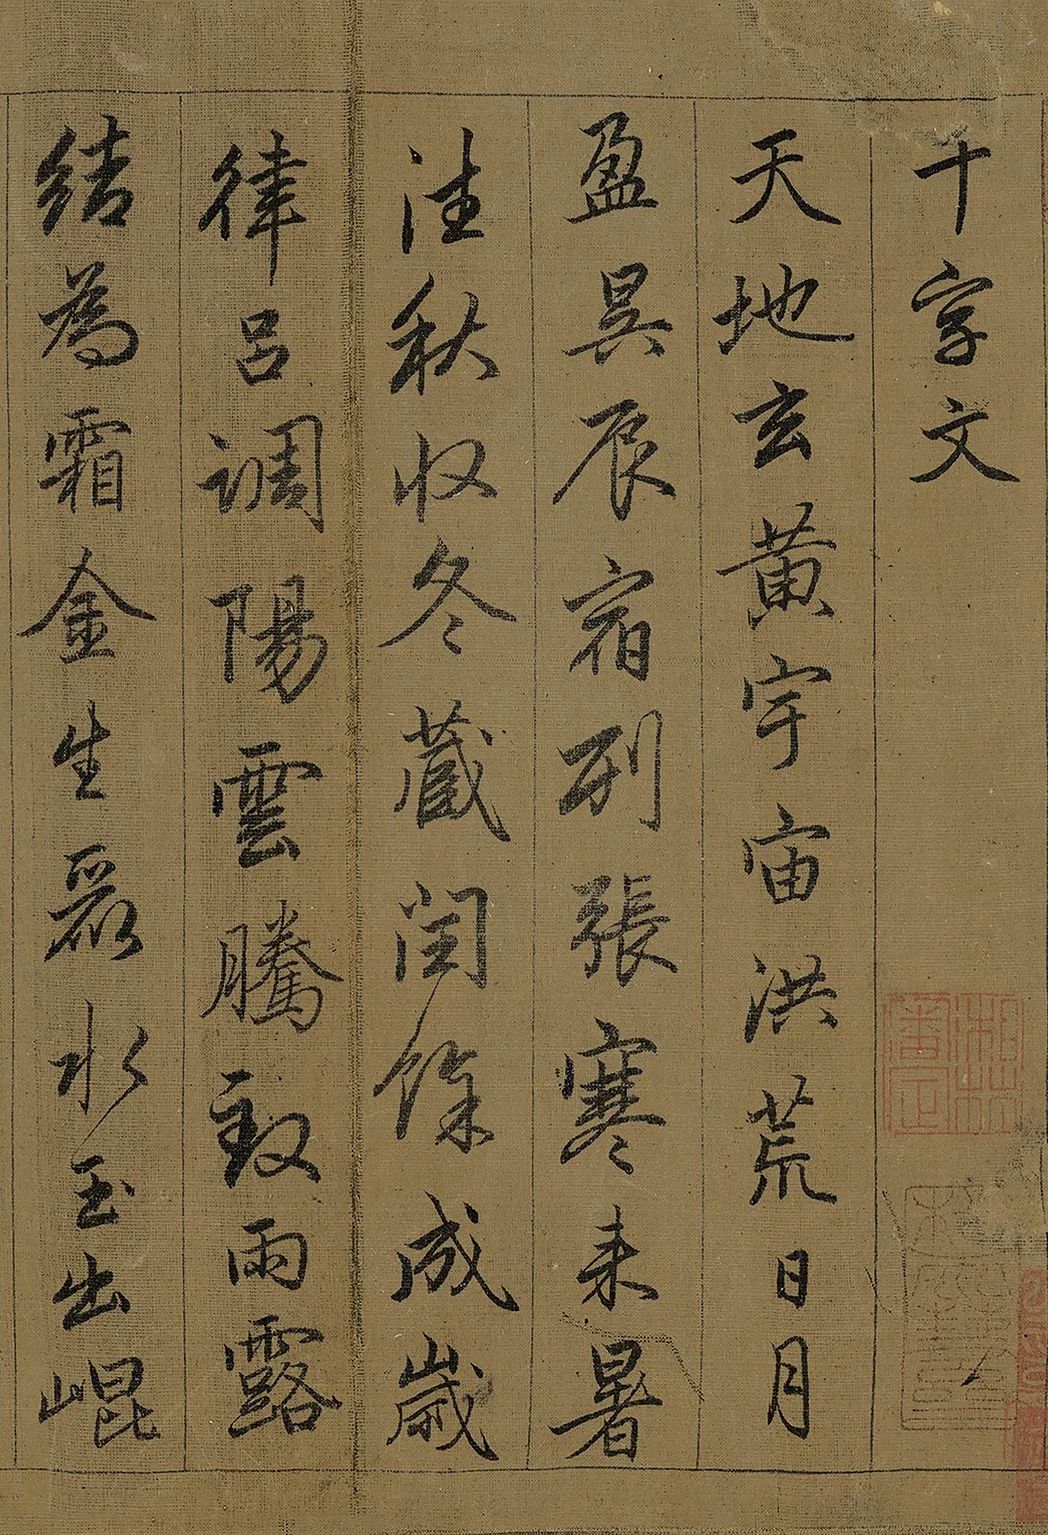 千字文
天地玄黃宇宙洪荒日月
盈昃辰宿列張寒来暑
往秋收冬藏閏餘成歲
律呂調陽雲騰致雨露
結為霜金生麗水玉出崐